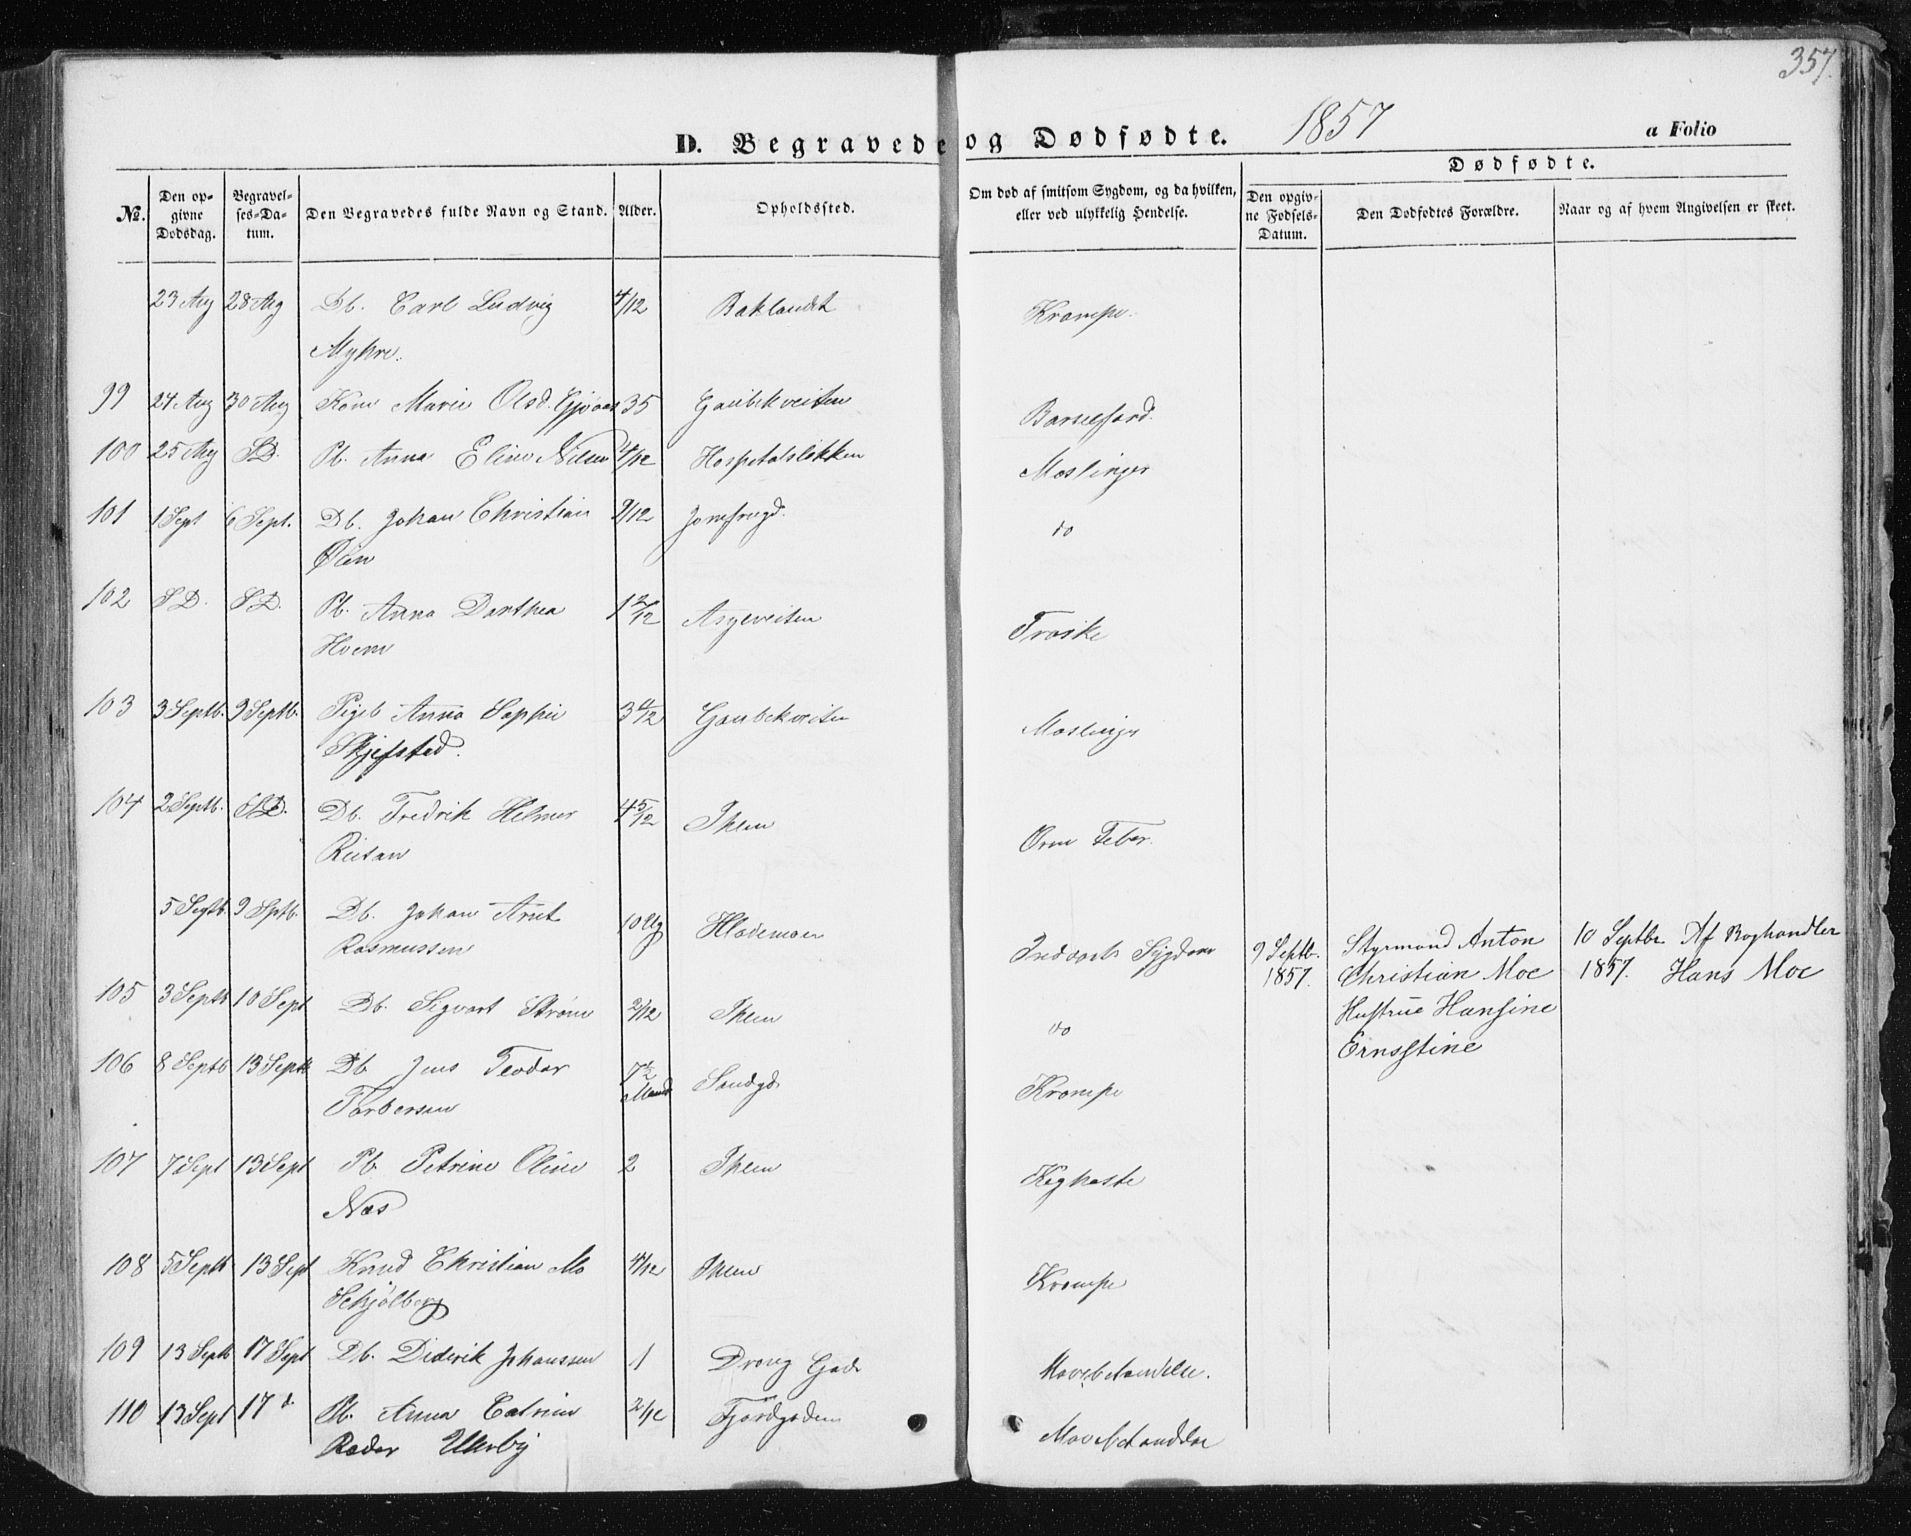 357.
D. Begravede og Dødfødte. 1857 a Folio
Dødfødte.
No. Den opgivne Dødsdag. Begravelses-Datum. Den Begravedes fulde Navn og Stand. Alder. Opholdssted. Om død af smitsom Sygdom, og da hvilken, eller ved ulykkelig Hendelse. Den opgivne Fødsels-Datum. Den Dødfødtes Forældre. Naar og af hvem Angivelsen er skeet.
23 Aug 28 Aug Db. Carl Ludvig 4/12 Baklandet Krampe.
Myhre.
99 24 Aug 30 Aug Kone Marie Olsd. 35 Gaubekveiten Barselfærd.
100 25 Aug S.D. Pb. Anna Eline Nilsen 4/12 Hospetalsløkken Mæslinger
101 1 Sept 6 Sept. Db. Johan Christian 9/12 Jomfrugd. do
Øien
102 S.D. S.D. Pb. Anna Dorthea 1 2/12 Arylveiten Trøske
Hoem
103 3 Septb. 9 Septb. Pigeb Anna Sophie 3 4/12 Gaubekveiten Mæslinger
Skjefsted.
104 2 Septb. S.D. Db. Fredrik Helmer 4 5/12 Ihlen
Reitan
5 Septb. 9 Sptb. Db. Johan Arnt 10 Ug Hlademoen Indvorts Sygdom
Rasmussen
9 Septb. 1857. Styrmand Anton Christian Moe Hustrue Hansine Ernsstine
10 Septbr. 1857. Af Boghandler Hans Moe
105 3 Septb 10 Sept Db. Sigvart Strøm 2/12 Ihlen do
106 8 Septb 13 Septb Db Jens Teodor 7 1/2 Maand Sandgd. Krampe
Torbersen
107 7 Sept 13 Sept Pb. Petrine Oline 2 Ihlen Kighoste
Næs
108 5 Septb 13 Sept Knud Christian Mo 4/12 Ihlen Krampe
Schjølberg
109 13 Septb 17 Sept Db. Diderik Johanssen 1 Drong Gade Mavebetændelse.
110 13 Sept 17 d Pb. Anna Catrine 2/12 Fjordgaden
Røder